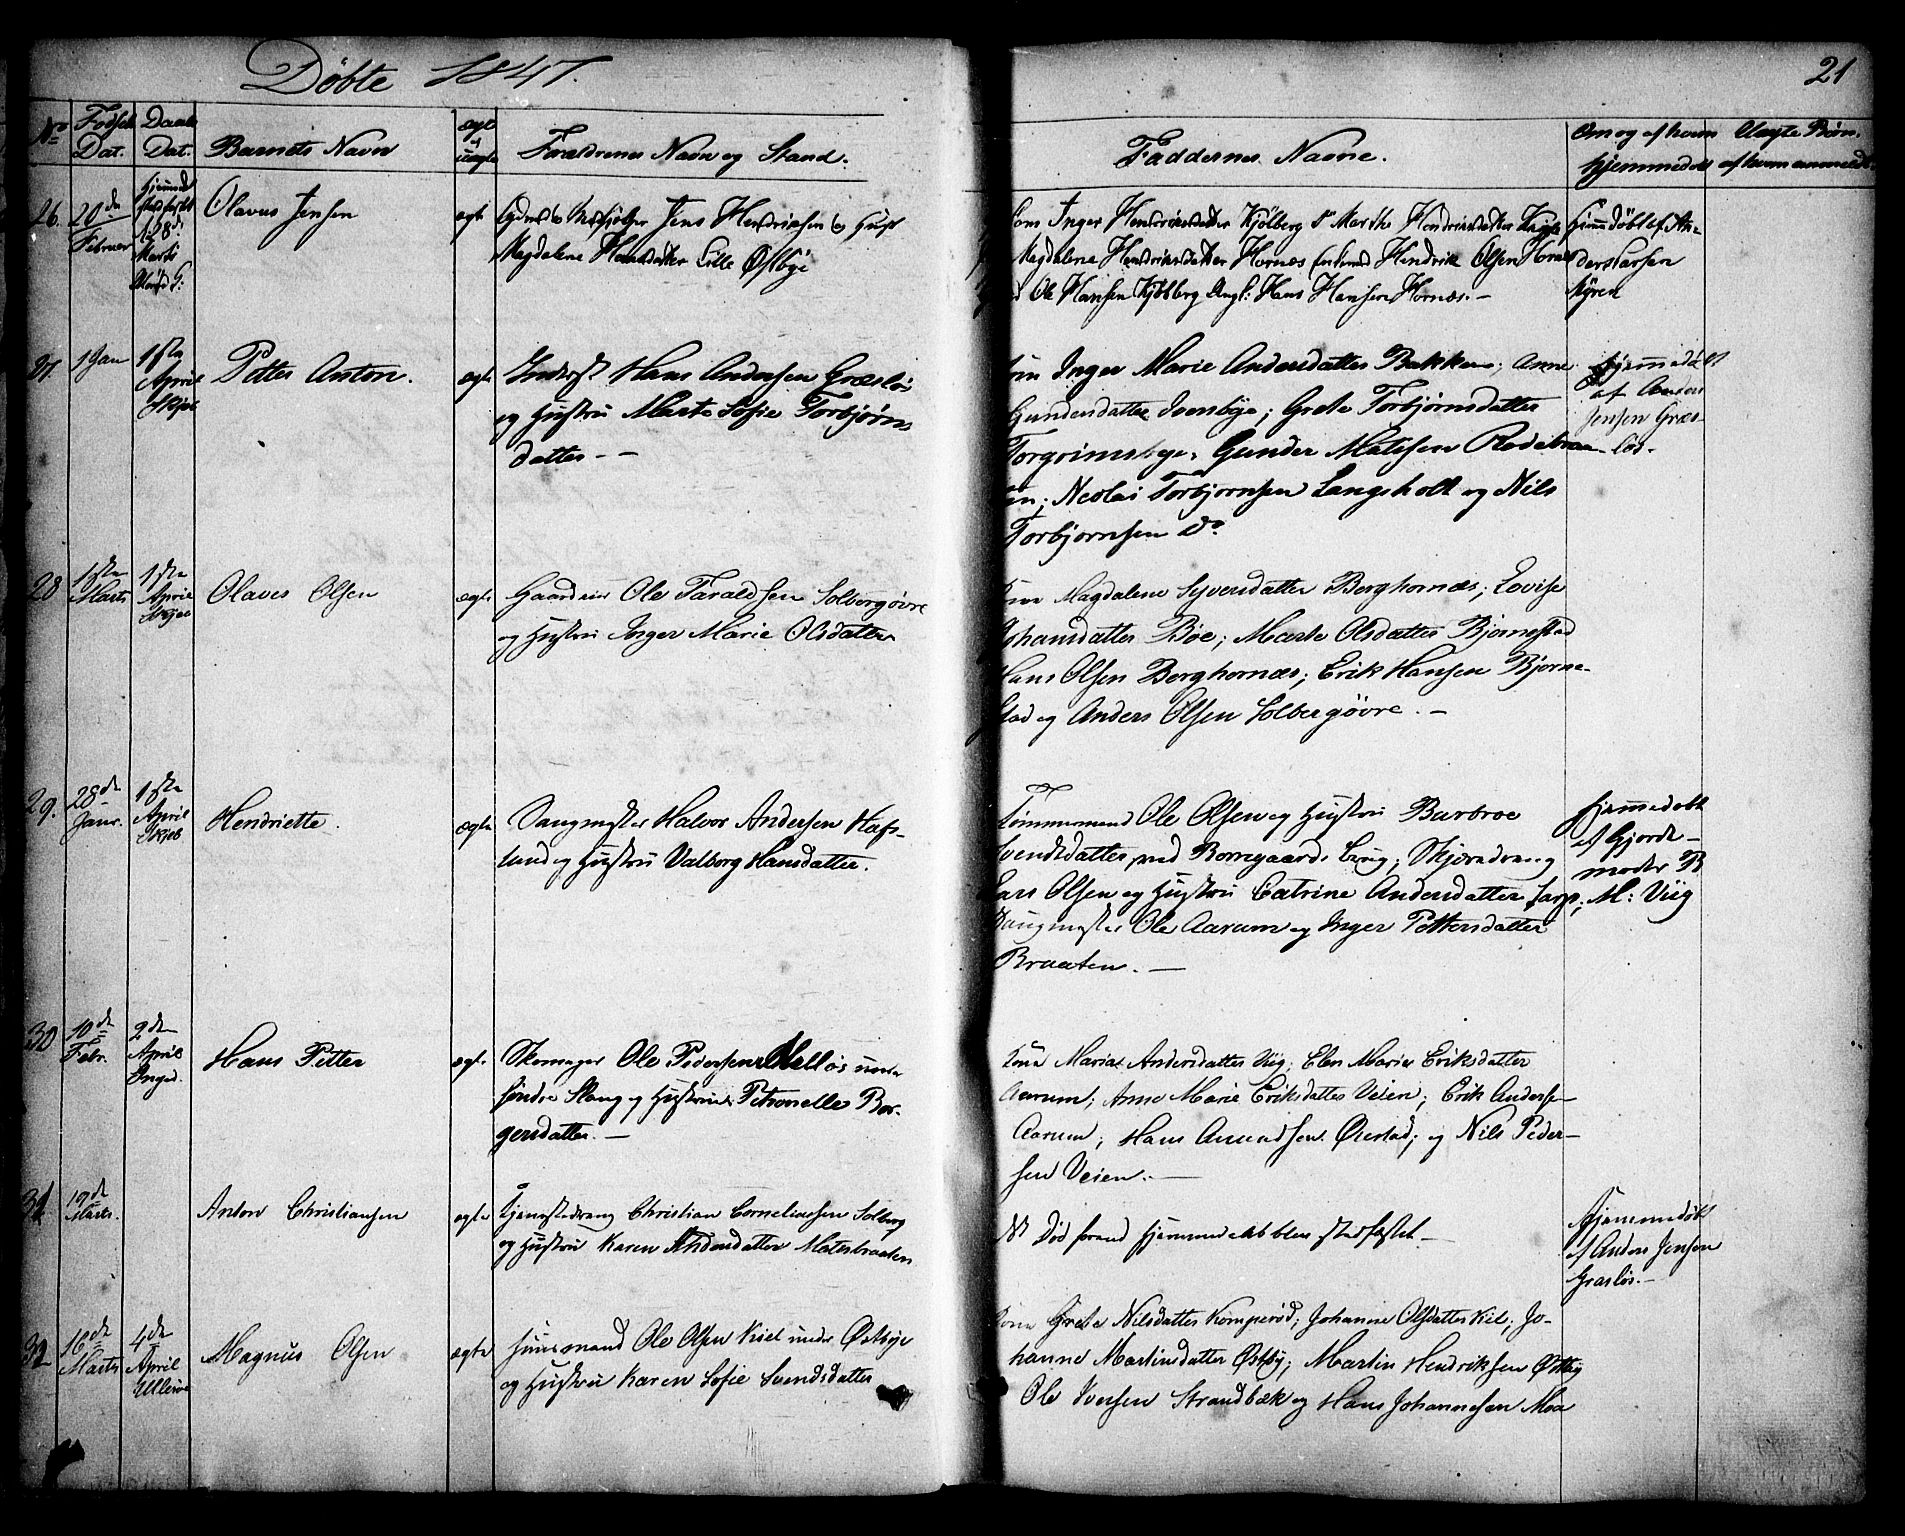 Døbte 1847.
21
No
Fødsels Dat.
Daabs Dat.
Barnets Navn
ægt. uægte
Forældrenes Navn og Stand.
Faddernes Navne.
Om og af hvem hjemmedøbt
Uægte Børn. af hvem anmeldt
26. 20de Februar
28de Marts
Olavus Jensen
ægte
Jens Hendriksen og Hust
Magdalene Hansdatter Lille Østbye
Inger Hendriksdatter Kjølberg Marthe Hendriksdatter
Magdalene Hendriksdatter Hornæs Hendrik Olsen Hornæs
Ole Hansen Kjølberg Ungk: Hans Hansen Hornæs. –
Hjemdøbt af An-
ders Larsen
Myren
27. 1 Jan
1ste
April
Skjeb
Petter Anton.
ægte
Inderst Hans Andersen Græslø
og Hustru Marte Sofie Torbjørns
datter – –
Inger Marie Andersdatter Bakken; Anne
Gundersdatter Ivensbye; Grete Torbjørnsdatter
Torgrimsbye; Gunder Matisen Rodebraa-
ten; Nicolai Torbjornsen Langsholt og Nils
Torbjornsen do
Hjemmedøbt
af Anders
Jensen Græs-
løs.
28 1ste Marts
1ste
April
Skjeb
Olaves Olsen
ægte
Gaardeier Ole Taraldsen Solbergøvre
og Hustru Inger Marie Olsdatter
Kone Magdalene Syversdatter Berghornæs; Lovise
Johansdatter Bøe; Marte Olsdatter Bjørnestad
Hans Olsen Berghornæs; Erik Hansen Bjorne-
stad og Anders Olsen Solbergøvre. –
29. 28de Janr.
1ste
April
Skjeb
Henriette.
ægte
Saugmester Halvor Andersen Hafs-
lund og Hustru Valborg Hansdatter.
Tømmermand Ole Olsen og Hustru Barbroe
Svendsdatter ved Borregaards Brug; Skjæredreng
Lars Olsen og Hustru Catrine Andersdatter Sarp;
Saugmester Ole Aarum og Inger Pettersdatter
Braaten. –
Hjemmedøbt
af Gjorde-
moder B
M: Viig
30 10de Febr.
2den
April
Inged.
Hans Petter
ægte
Skomager Ole Pedersen Melløs under
søndre Stang og Hustrue Petronelle Bor-
gersdatter. –
Kone Maria Andersdatter Viig; Elen Marie Eriksdatter
Aarum; Anne Marie Eriksdatter Veien; Erik Andersen
Aarum; Hans Amundsen Ørestad; og Nils Peder-
sen Veien. –
31 19de Marts.
Anton Christiansen
ægte
Tjenestedreng Christian Corneliussen Solberg
og Hustru Karen Andersdatter Matesbraaten
Død forend Hjemmedaabblev stadfæstet. –
Hjemmedøbt
af Anders Jensen
Græsløs. –
32 16de Marts
4de
April
Ullerøe
Magnus Olsen
ægte
Huusmand Ole Olsen Kiil under Østbye
og Hustru Karen Sofie Svendsdatter
Kone Grete Nilsdatter Komperød; Johanne Olsdatter Kiil; Jo-
hanne Martinsdatter Østby; Martin Hendriksen Østby
Ole Iversen Strandbæk og Hans Johannesen Moa